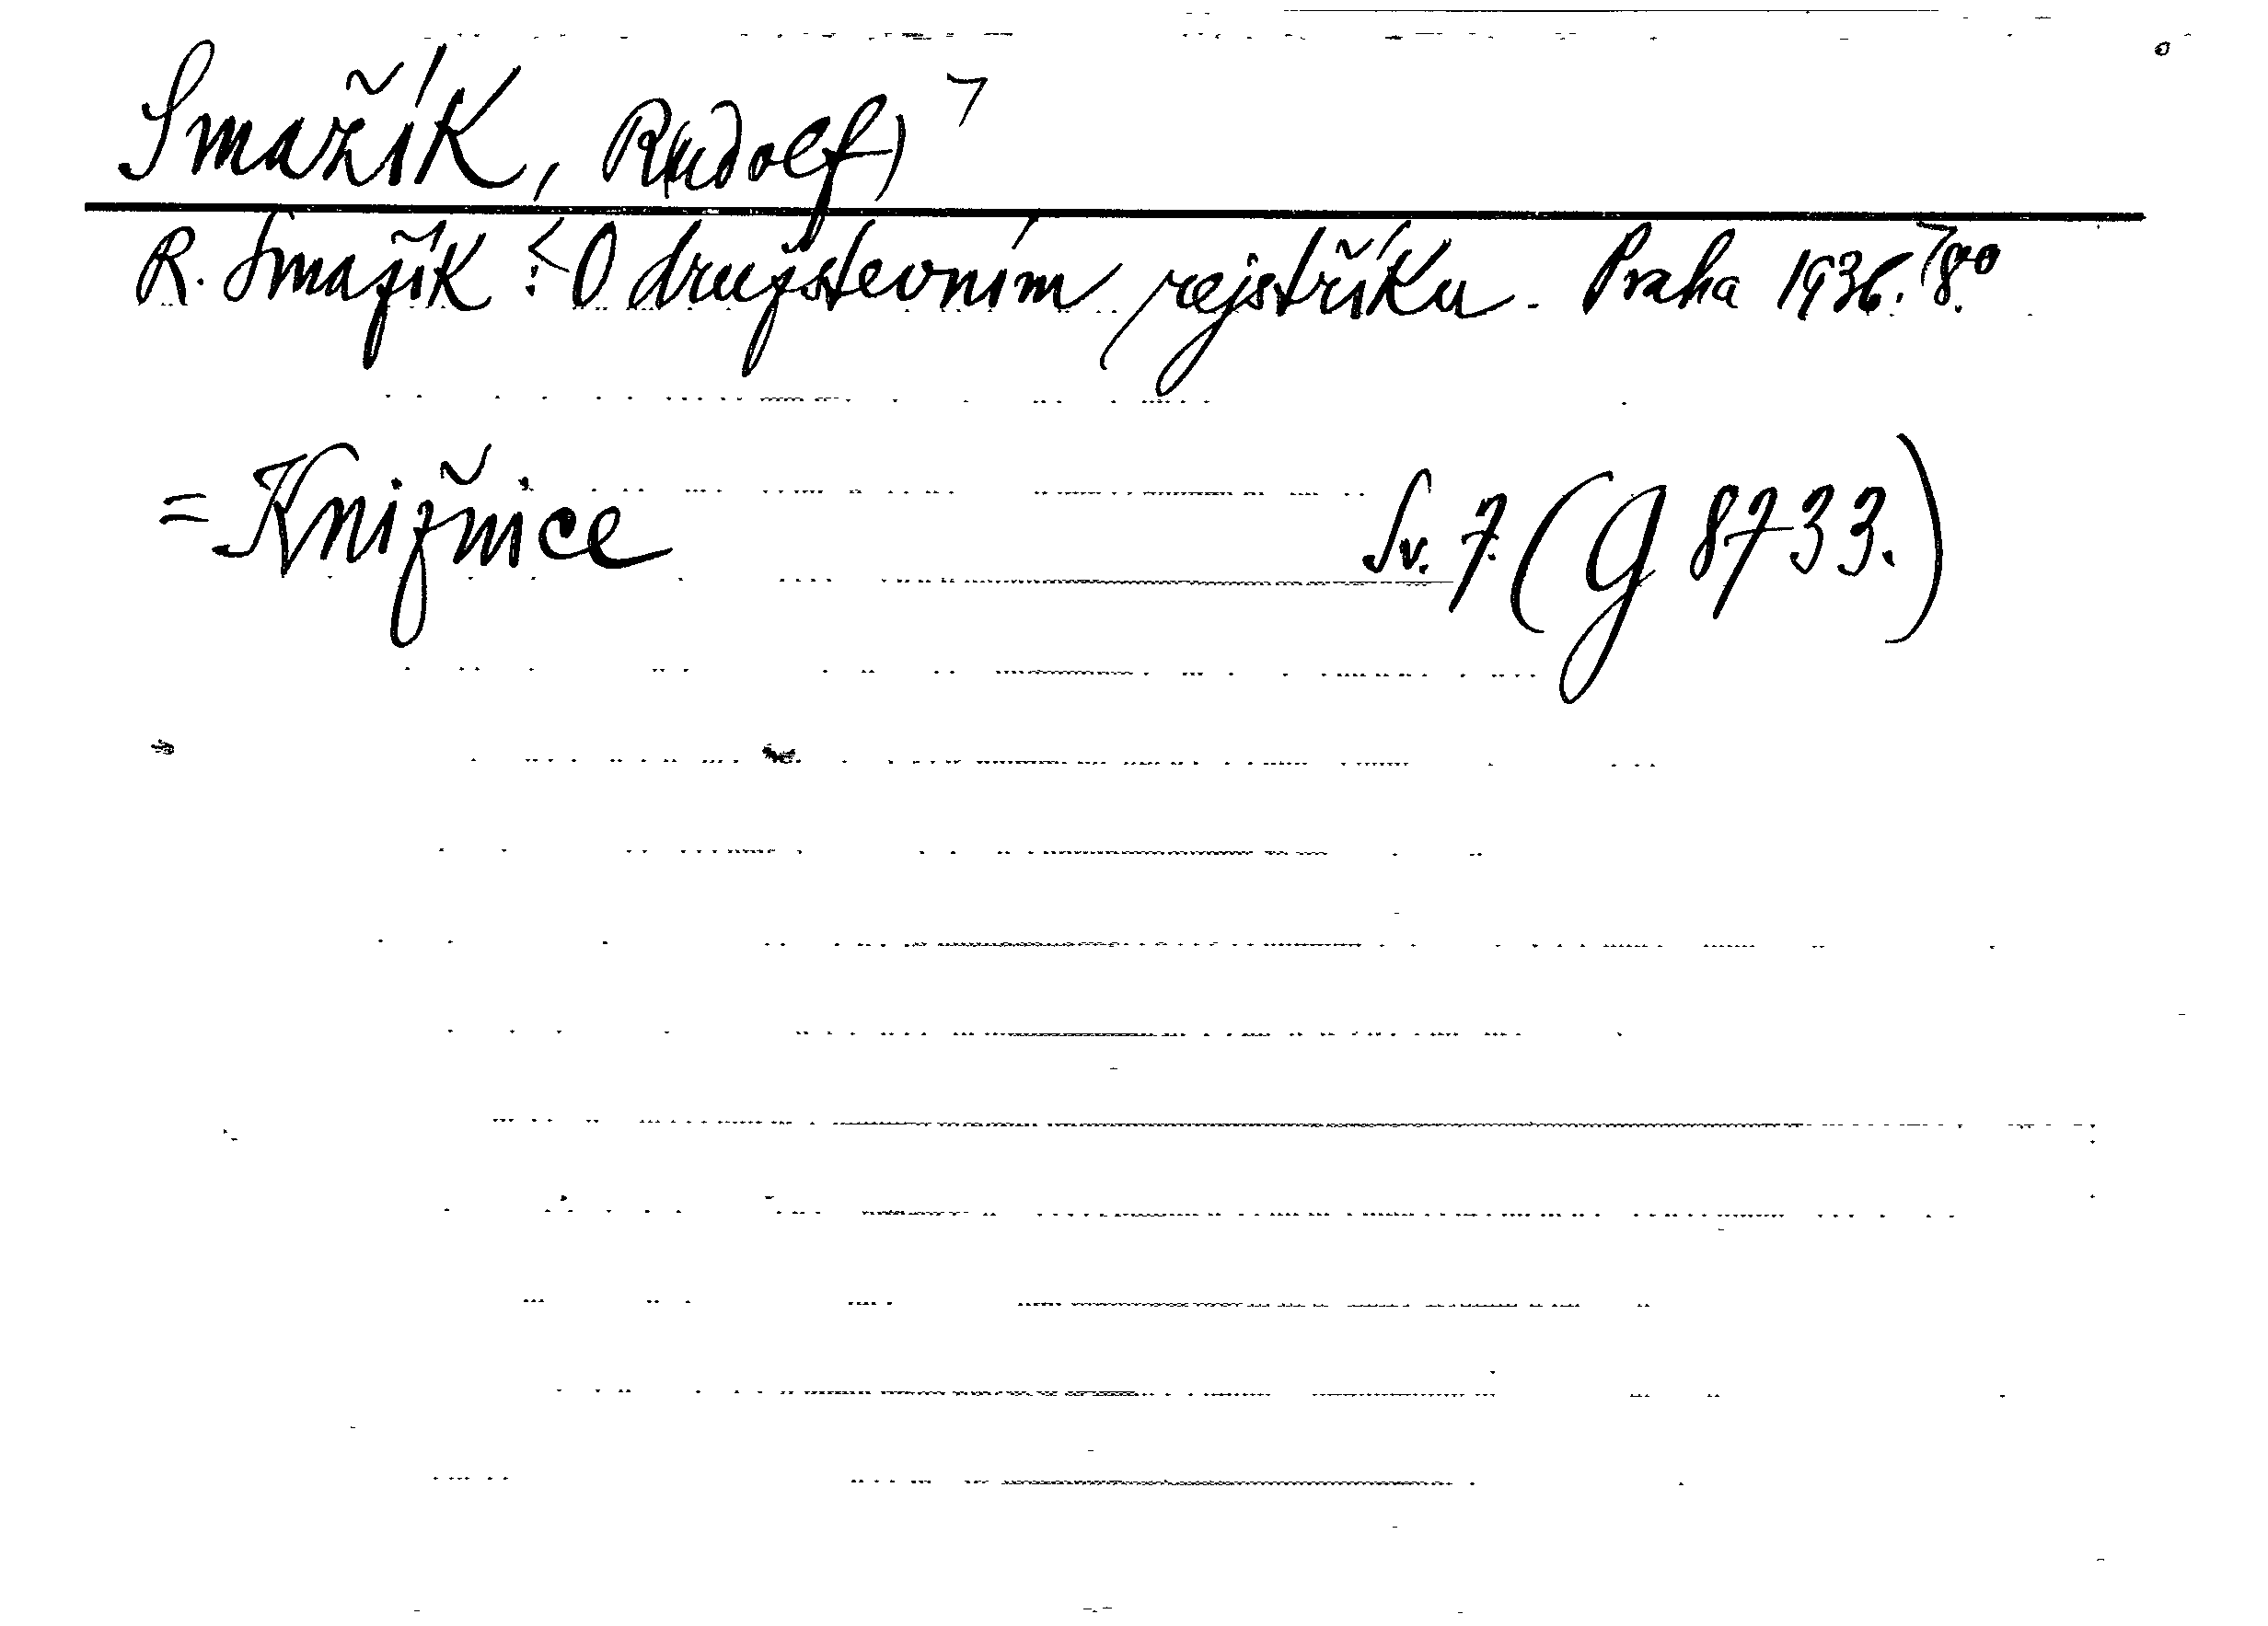 Smažík, R(udolf)
R. Smažík: O družstevním rejstříku. Praha 1936. 8.°
= Knižnice Sv. 7. (G 8733.)